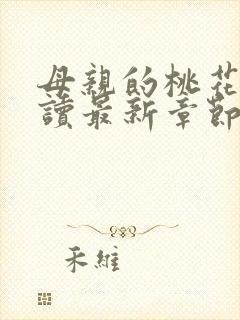 母親的桃花
讀最新章節
禾維